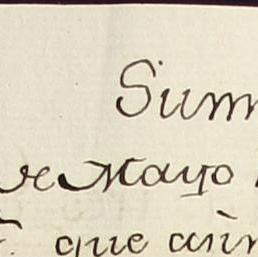 Sum
de Mayo
que aùn